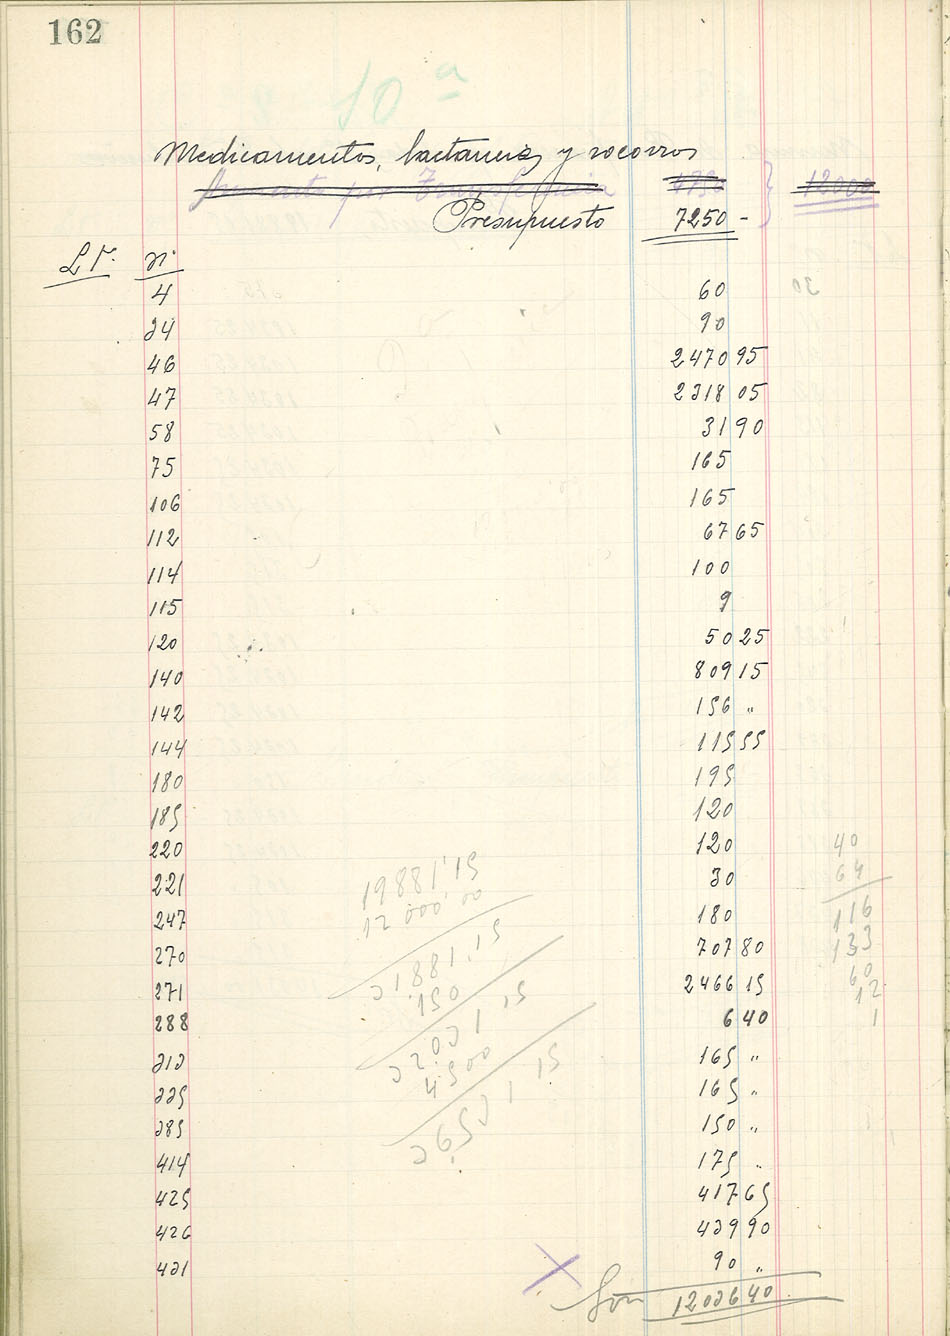 162
10ª
Medicamentos, lactancia y socorros
4750 12000
Presupuesto 7250 -
Lº. nº
4 60
34 90
46 2470 95
47 2318 05
58 31 90
75 165
106 165
112 67 65
114 100
115 9
120 50 25
140 809 15
142 156 "
144 115 55
180 195
185 120
220 120
221 30
247 180
270 707 80
271 2466 15
288 6 40
313 165 "
335 165 "
385 150 "
414 175 "
425 417 65
426 439 90
431 90 "
Son 12036 40
40
64
116
133
60
12
1
19881,15
12 000,00